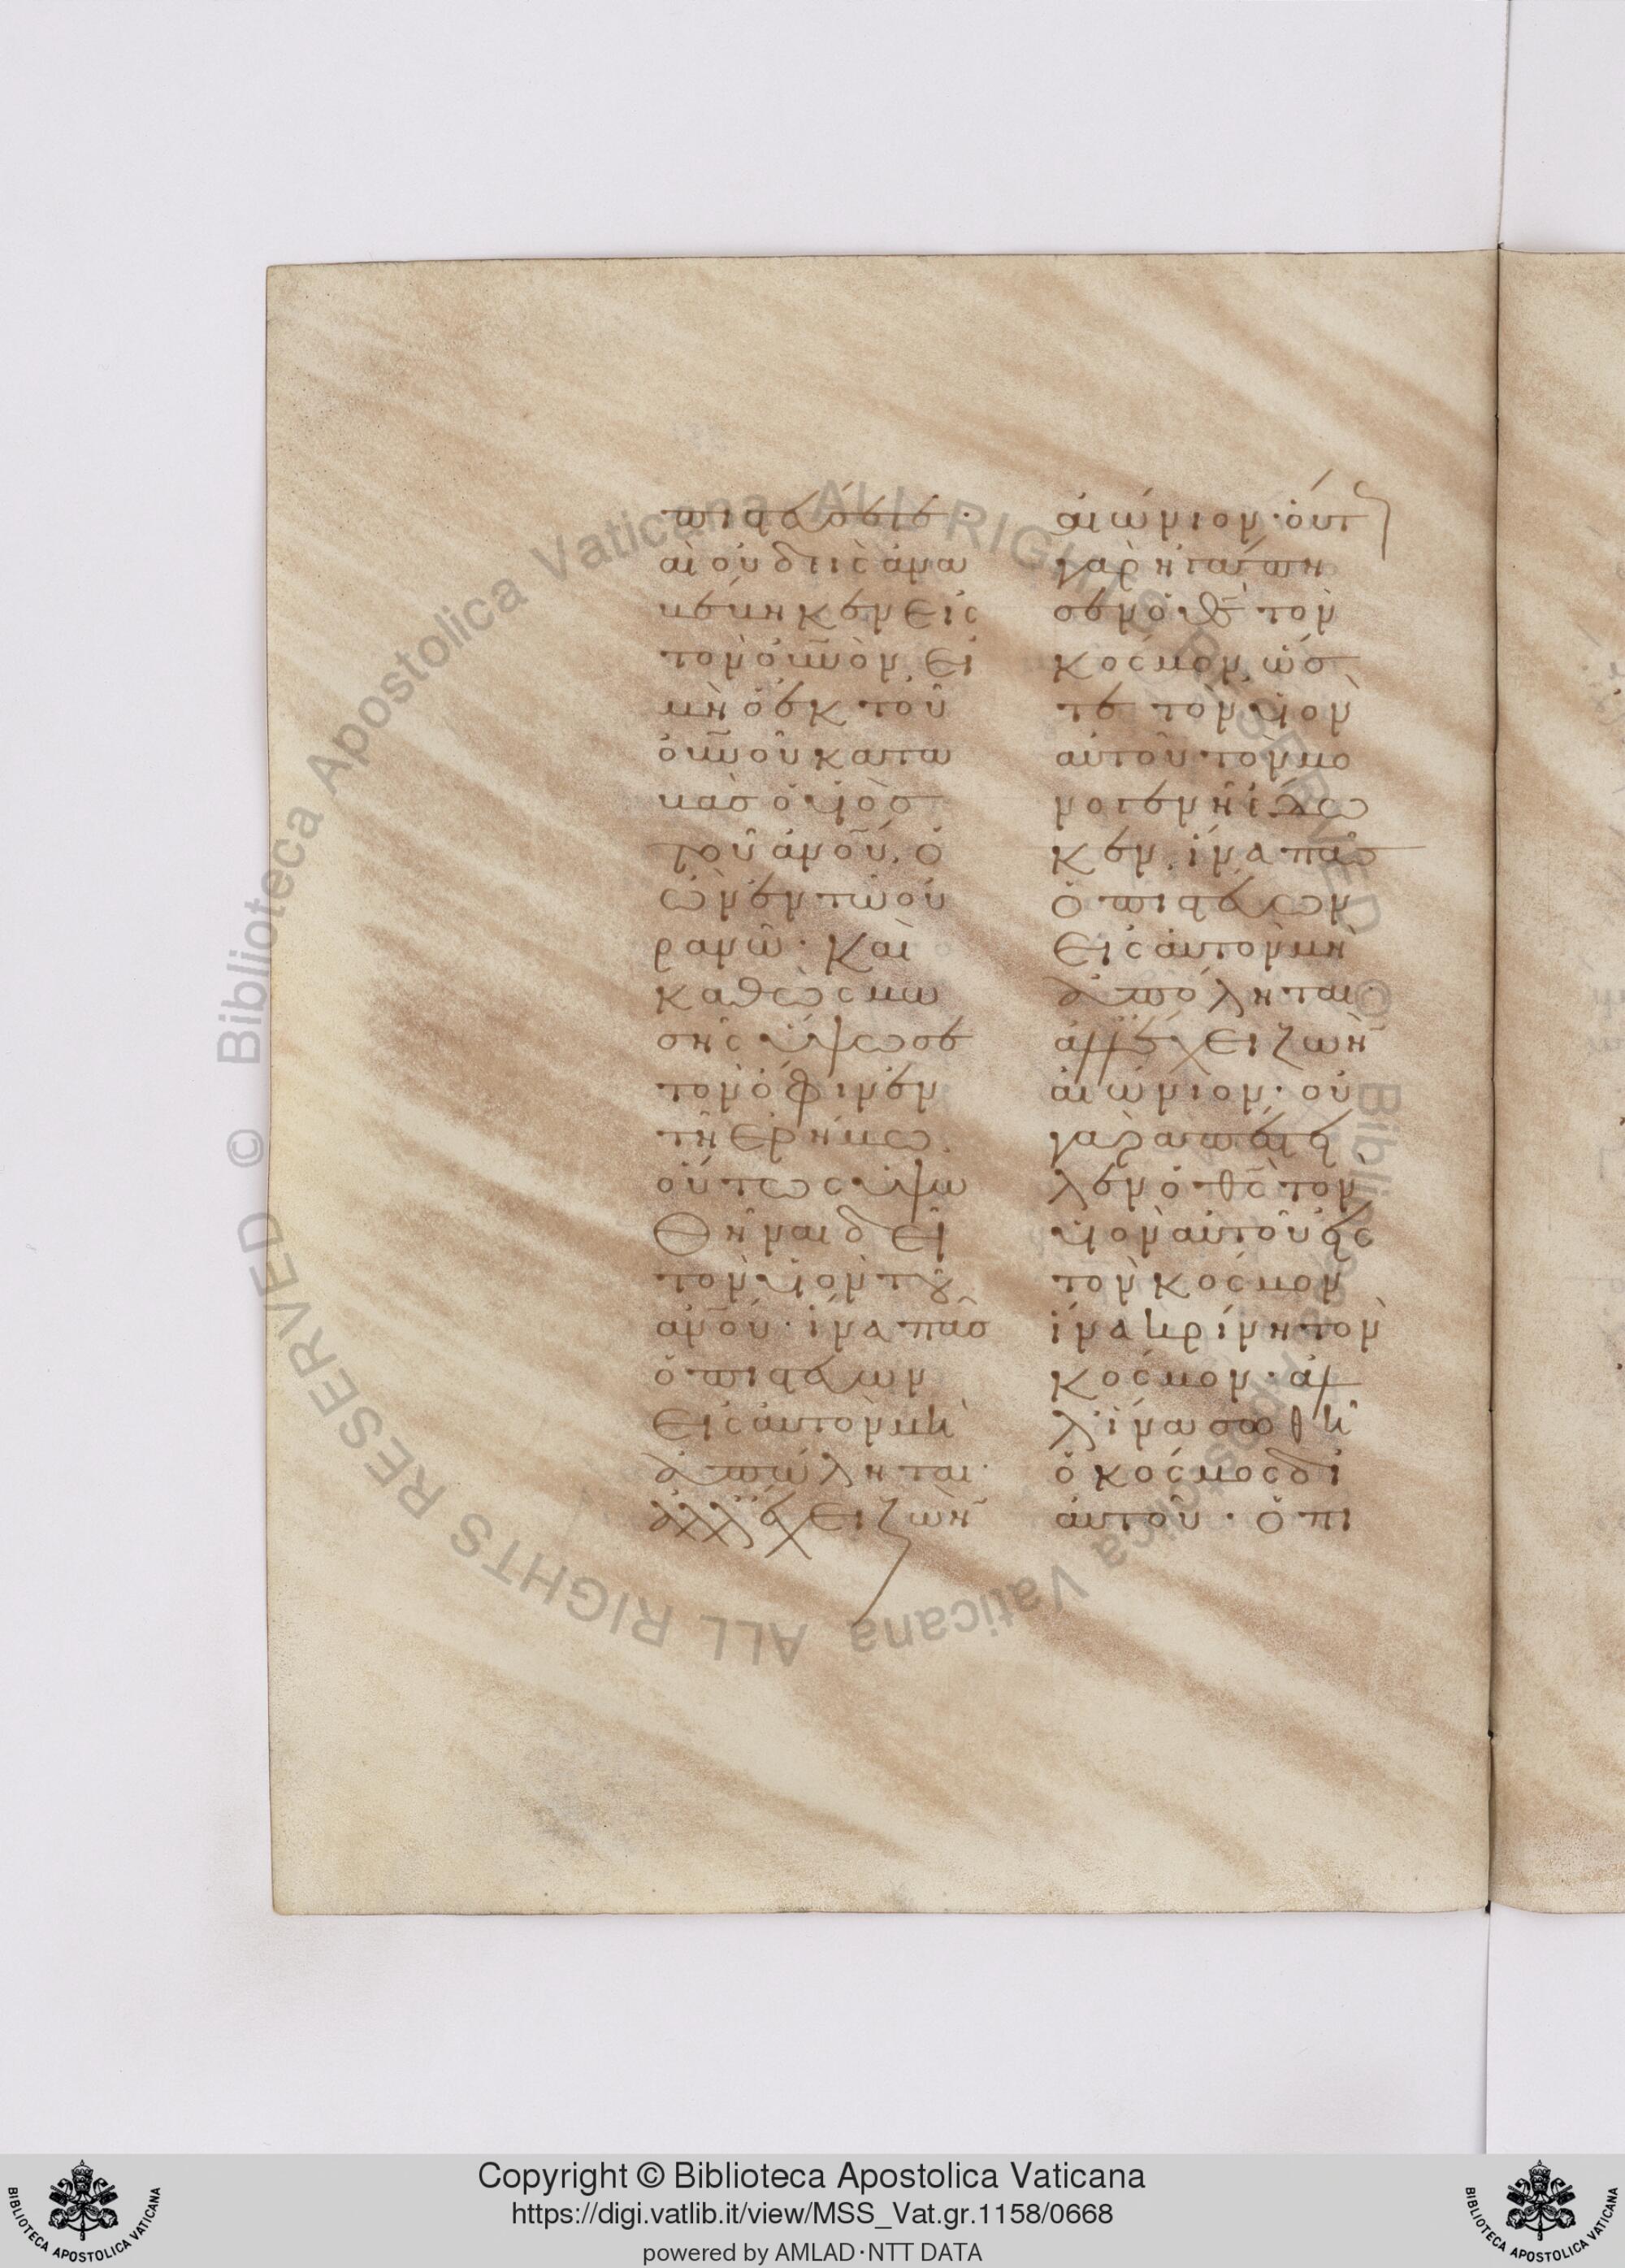 πιστεύσετε·
αὶ οὐδεὶς ἀνα
βέβηκεν εἰς
τὸν οὐ̅νον εἰ
μὴ ὁ ἐκ τοῦ
οὐ̅νοῦ κατα
βὰς ὁ υἱὸς
τοῦ ἀν̅ου, ὁ
ὢν ἐν τῷ οὐ
ρανῷ. καὶ
καθὼς μω
σῆς ὕψωσε
τὸν ὄφιν ἐν
τῇ ἐρήμω.
οὕτως ὑψω
θῆναι δεῖ
τὸν υἱὸν τοῦ
ἀν̅ου· ἵνα πᾶσ
ὁ πιστεύων
εἰς αὐτὸν μὴ
ἀπώληται·
ἀλλ' ἔχει ζωὴν
αἰώνιον· οὕτω
γὰρ ἠγάπη
σεν ὁ θς̅ τὸν
κόσμον, ὥσ
τε τὸν υἱὸν
αὐτοῦ τὸν μο
νογενῆ ἔδω
κεν, ἵνα πᾶς
ὁ πιστεύων
εἰς αὐτὸν μὴ
ἀπόληται·
ἀλλ' ἔχει ζωὴν
αἰώνιον· οὐ
γὰρ ἀπέστει
λεν ὁ θς̅ τὸν
υἱὸν αὐτοῦ εἰς
τὸν κόσμον
ἵνα κρίνη τὸν
κόσμον· ἀλ
λ' ἵνα σωθῆ
ὁ κόσμος δι
αὐτοῦ· ὁ πι
Copyright © Biblioteca Apostolica Vaticana
https://digi.vatlib.it/view/MSS_Vat.gr.1158/0668
powered by AMLAD·NTT DATA
BIBLIOTECA APOSTOLICA VATICANA
BIBLIOTECA APOSTOLICA VATICANA
© Biblioteca Apostolica Vaticana ALL RIGHTS RESERVED © Biblioteca Apostolica Vaticana ALL RIGHTS RESERVED